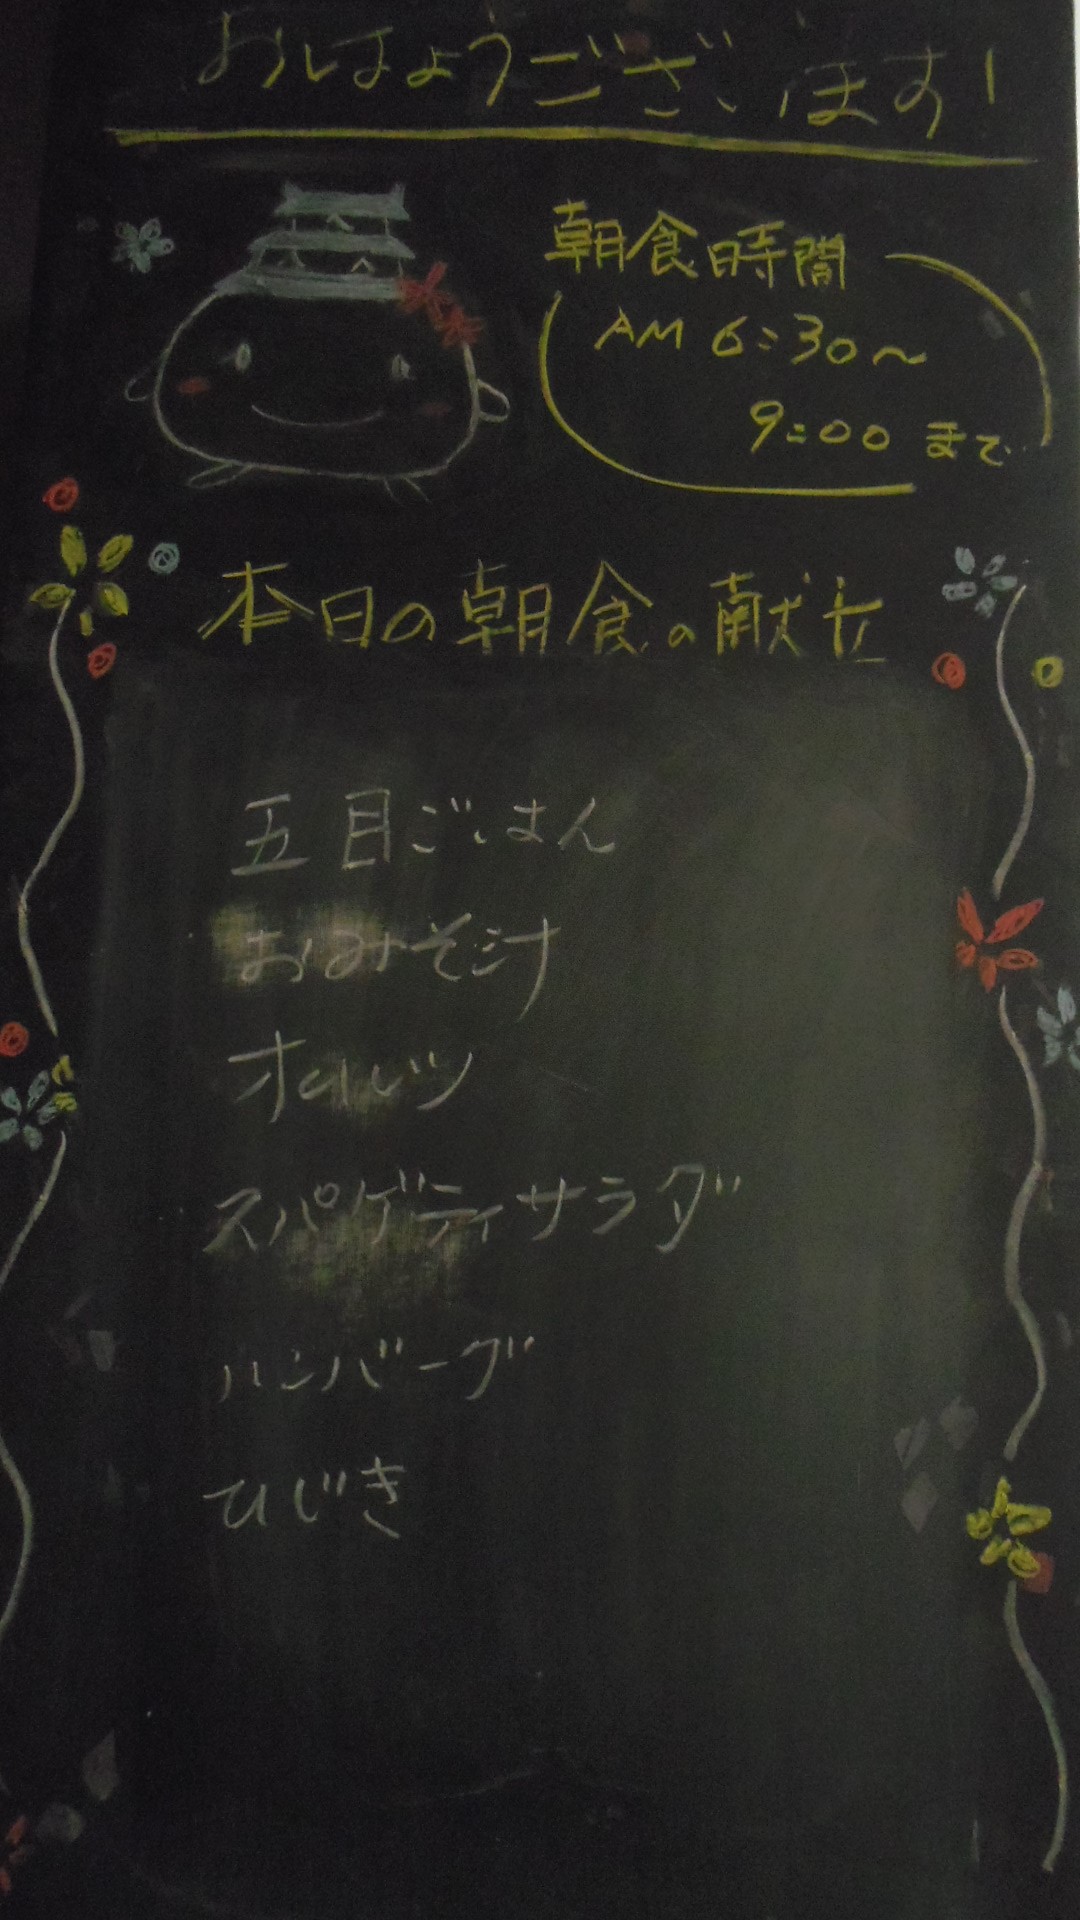 おはようございます!
朝食時間
AM 6:30〜
9:00 まで
本日の朝食の献立
五目ごはん
おみそ汁
オムレツ
スパゲティサラダ
ハンバーグ
ひじき